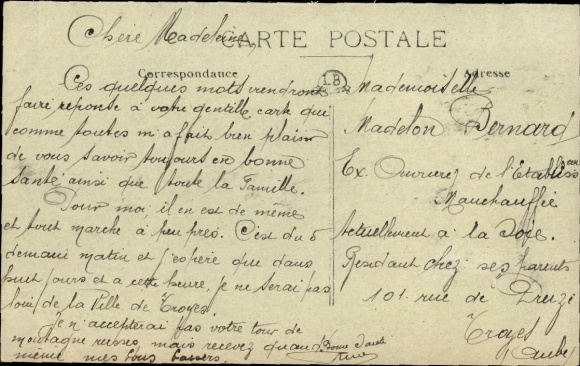 Chère Madeleine
CARTE POSTALE
Correspondance
Adresse
Ces quelques mots viendront
faire réponse à votre gentille carte que
comme toutes m'a fait bien plaisir
de vous savoir toujours en bonne
santé ainsi que toute la Famille.
Pour moi, il en est de même
et tout marche à peu près. C'est du 5
demain matin et j'espère que dans
huit jours et a cette heure, je ne serai pas
loin de la Ville de Troyes.
Je n'accepterai pas votre tour de
montagne russes, mais recevez quand
même mes bons baisers.
Bonne Santé
LB
Mademoiselle
Madelon Bernard
Ex. Ouvrière de l'Etabliss
Manchauffée
Actuellement à la Soie.
Résidant chez ses parents
101 rue de Preize
Troyes
(Aube)